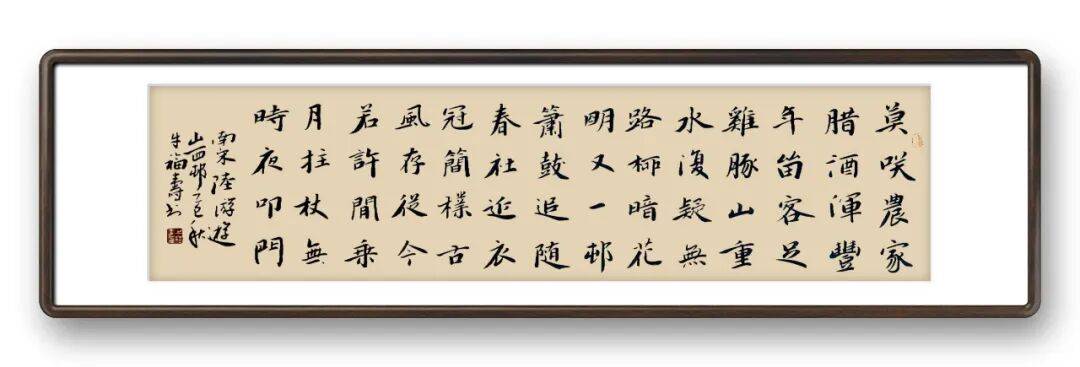 莫咲農家
腊酒渾豐
年留客足
雞豚山重
水復疑無
路柳暗花
明又一邨
簫鼓追随
春社近衣
冠簡樸古
風存從今
若許閒乗
月拄杖無
時夜叩門
南宋陸游遊
山西邨乙巳秋
牛福壽书